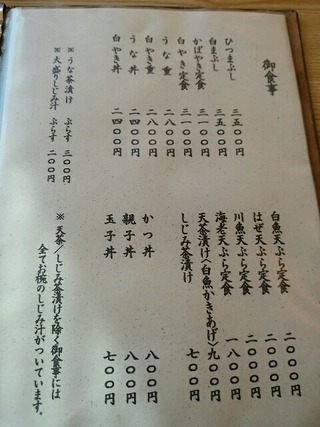 御食事
ひつまぶし 三五〇〇円
白まぶし 三五〇〇円
かばやき定食 三一〇〇円
白やき定食 三一〇〇円
うな重 二八〇〇円
白やき重 二八〇〇円
うな丼 二四〇〇円
白やき丼 二四〇〇円
※うな茶漬け ぷらす 三〇〇円
※大盛りしじみ汁 ぷらす 二〇〇円
白魚天ぷら定食 二〇〇〇円
はぜ天ぷら定食 二〇〇〇円
川魚天ぷら定食 二〇〇〇円
海老天ぷら定食 一八〇〇円
天茶漬け(白魚かきあげ) 九〇〇円
しじみ茶漬け 七〇〇円
かつ丼 八〇〇円
親子丼 八〇〇円
玉子丼 七〇〇円
※天茶/しじみ茶漬けを除く御食事には
全てお椀のしじみ汁がついています。